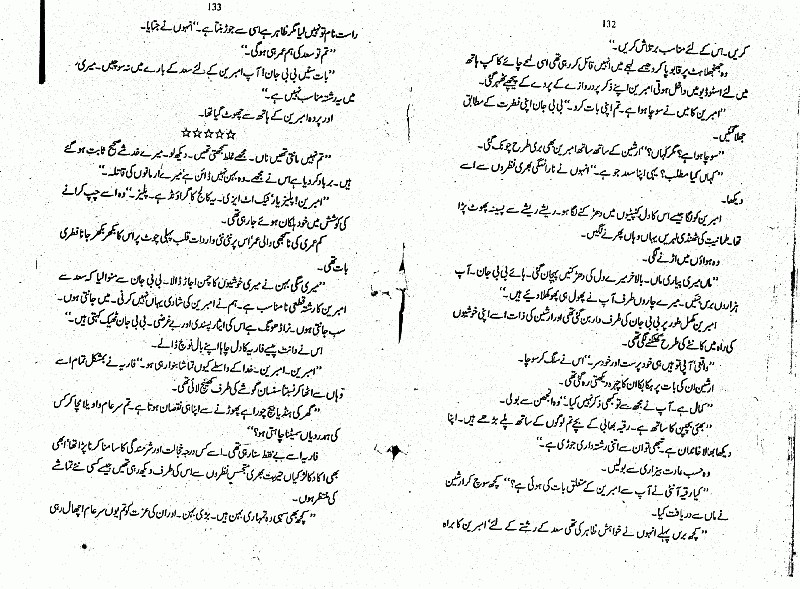 132
کریں۔ اس کے لئے مناسب بر تلاش کریں۔"
وہ جھنجھلاہٹ پر قابو پا کر دھیمے لہجے میں انہیں قائل کر رہی تھی اسی لمحے چائے کا کپ ہاتھ
میں لئے اسٹوڈیو میں داخل ہوتی امبرین اپنے ذکر پر دروازے کے پردے کے پیچھے ٹھہر گئی۔
"امبرین کا میں نے سوچا ہوا ہے۔ تم اپنی بات کرو۔" بی بی جان اپنی فطرت کے مطابق
جھلا گئیں۔
"سوچا ہوا ہے؟ مگر کہاں؟" ارشین کے ساتھ ساتھ امبرین بھی بری طرح چونک گئی۔
"کہاں کیا مطلب؟ یہی اپنا سعد جو ہے۔" انہوں نے ناراضگی بھری نظروں سے اسے
دیکھا۔
امبرین کو لگا جیسے اس کا دل کنپٹیوں میں دھڑکنے لگا ہو۔ ریشے ریشے سے پسینہ پھوٹ پڑا
تھا۔ طمانیت کی ٹھنڈی لہریں یہاں وہاں پھرنے لگیں۔
وہ ہواؤں میں اڑنے لگی۔
"ماں میری پیاری ماں۔ بالآخر میرے دل کی دھڑکنیں پہچان گئی۔ ہائے بی بی جان۔ آپ
ہزاروں برس جئیں۔ میرے چاروں طرف آپ نے پھول ہی پھول کھلا دیئے ہیں۔"
امبرین مکمل طور پر بی بی جان کی طرف وار بن گئی تھی اور ارشین کی ذات اسے اپنی خوشیوں
کی راہ میں کانٹے کی طرح کھٹکنے لگی تھی۔
"واقعی آپی تو ہیں ہی خود پرست اور خود سر۔" اس نے سلگ کر سوچا۔
ارشین ان کی بات پر ہکا بکا ان کا چہرہ دیکھتی رہ گئی تھی۔
"کمال ہے۔ آپ نے مجھ سے تو کبھی ذکر نہیں کیا۔" وہ الجھن سے بولی۔
"بھئی بچپن کا ساتھ ہے۔ رقیہ بھابی کے بچے تم لوگوں کے ساتھ پلے بڑھے ہیں۔ اپنا
دیکھا بھالا خاندان ہے۔ تبھی تو ان سے اتنی رشتہ داری جوڑی ہے۔"
وہ حسب عادت بیزاری سے بولیں۔
"کیا رقیہ آنٹی نے آپ سے امبرین کے متعلق بات کی ہوئی ہے؟" کچھ سوچ کر ارشین
نے ماں سے دریافت کیا۔
"کچھ برس پہلے انہوں نے خواہش ظاہر کی تھی سعد کے رشتے کے لئے امبرین کا براہ
133
راست نام تو نہیں لیا مگر ظاہر ہے اسی سے جوڑ بنتا ہے۔" انہوں نے جتایا۔
"تم تو سعد کی ہم عمر ہی ہوگی۔"
"بات سنیں بی بی جان! آپ امبرین کے لئے سعد کے بارے میں نہ سوچیں۔ میری،
میں یہ رشتہ مناسب نہیں ہے۔"
اور پردہ امبرین کے ہاتھ سے چھوٹ گیا تھا۔
☆☆☆☆☆
"تم نہیں مانتی تھیں ناں۔ مجھے غلط سمجھتی تھیں۔ دیکھ لو۔ میرے خدشے صحیح ثابت ہو گئے
ہیں۔ برباد کر دیا ہے اس نے مجھے۔ وہ بہن نہیں ڈائن ہے میرے ارمانوں کی قاتلہ۔"
"امبرین! پلیز یار ٹیک اٹ ایزی۔ یہ کالج کا گراؤنڈ ہے۔ پلیز۔" وہ اسے چپ کرانے
کی کوشش میں خود ہلکان ہوئے جا رہی تھی۔
کم عمری کی ناسمجھی والی عمر اس پر نئی نئی واردات قلب پہلی چوٹ پر اس کا بکھر بکھر جانا فطری
بات تھی۔
"میری سگی بہن نے میری خوشیوں کا چمن اجاڑ ڈالا۔ بی بی جان سے منوا لیا کہ سعد سے
امبرین کا رشتہ قطعی نامناسب ہے۔ ہم نے امبرین کی شادی یہاں نہیں کرنی۔ میں جانتی ہوں۔
سب جانتی ہوں۔ نرا ڈھونگ ہے اس کی ایثار پسندی اور بے غرضی۔ بی بی جان ٹھیک کہتی ہیں۔"
اس نے دانت پیسے فاریہ کا دل چاہا اپنے بال نوچ ڈالے۔
"امبرین۔ امبرین۔ خدا کے واسطے کیوں تماشا بنوا رہی ہو۔" فاریہ نے بمشکل تمام اسے
وہاں سے اٹھا کر نسبتاً سنسان گوشے کی طرف کھینچ لائی تھی۔
"گھر کی ہنڈیا بیچ چوراہے پھوڑنے سے اپنا ہی نقصان ہوتا ہے۔ تم سرعام واویلا مچا کر کس
کی ہمدردیاں سمیٹنا چاہتی ہو؟"
فاریہ اسے بے نقط سنا رہی تھی۔ اسے کس درجہ خجالت اور شرمندگی کا سامنا کرنا پڑا تھا؟ ابھی
بھی اکا دکا لڑکیاں حیرت بھری متجسس نظروں سے اس کی طرف دیکھ رہی تھیں جیسے کسی نئے تماشے
کی منتظر ہوں۔
"کچھ بھی سہی وہ تمہاری بہن ہیں۔ بڑی بہن۔ اور ان کی عزت کو تم یوں سرعام اچھال رہی